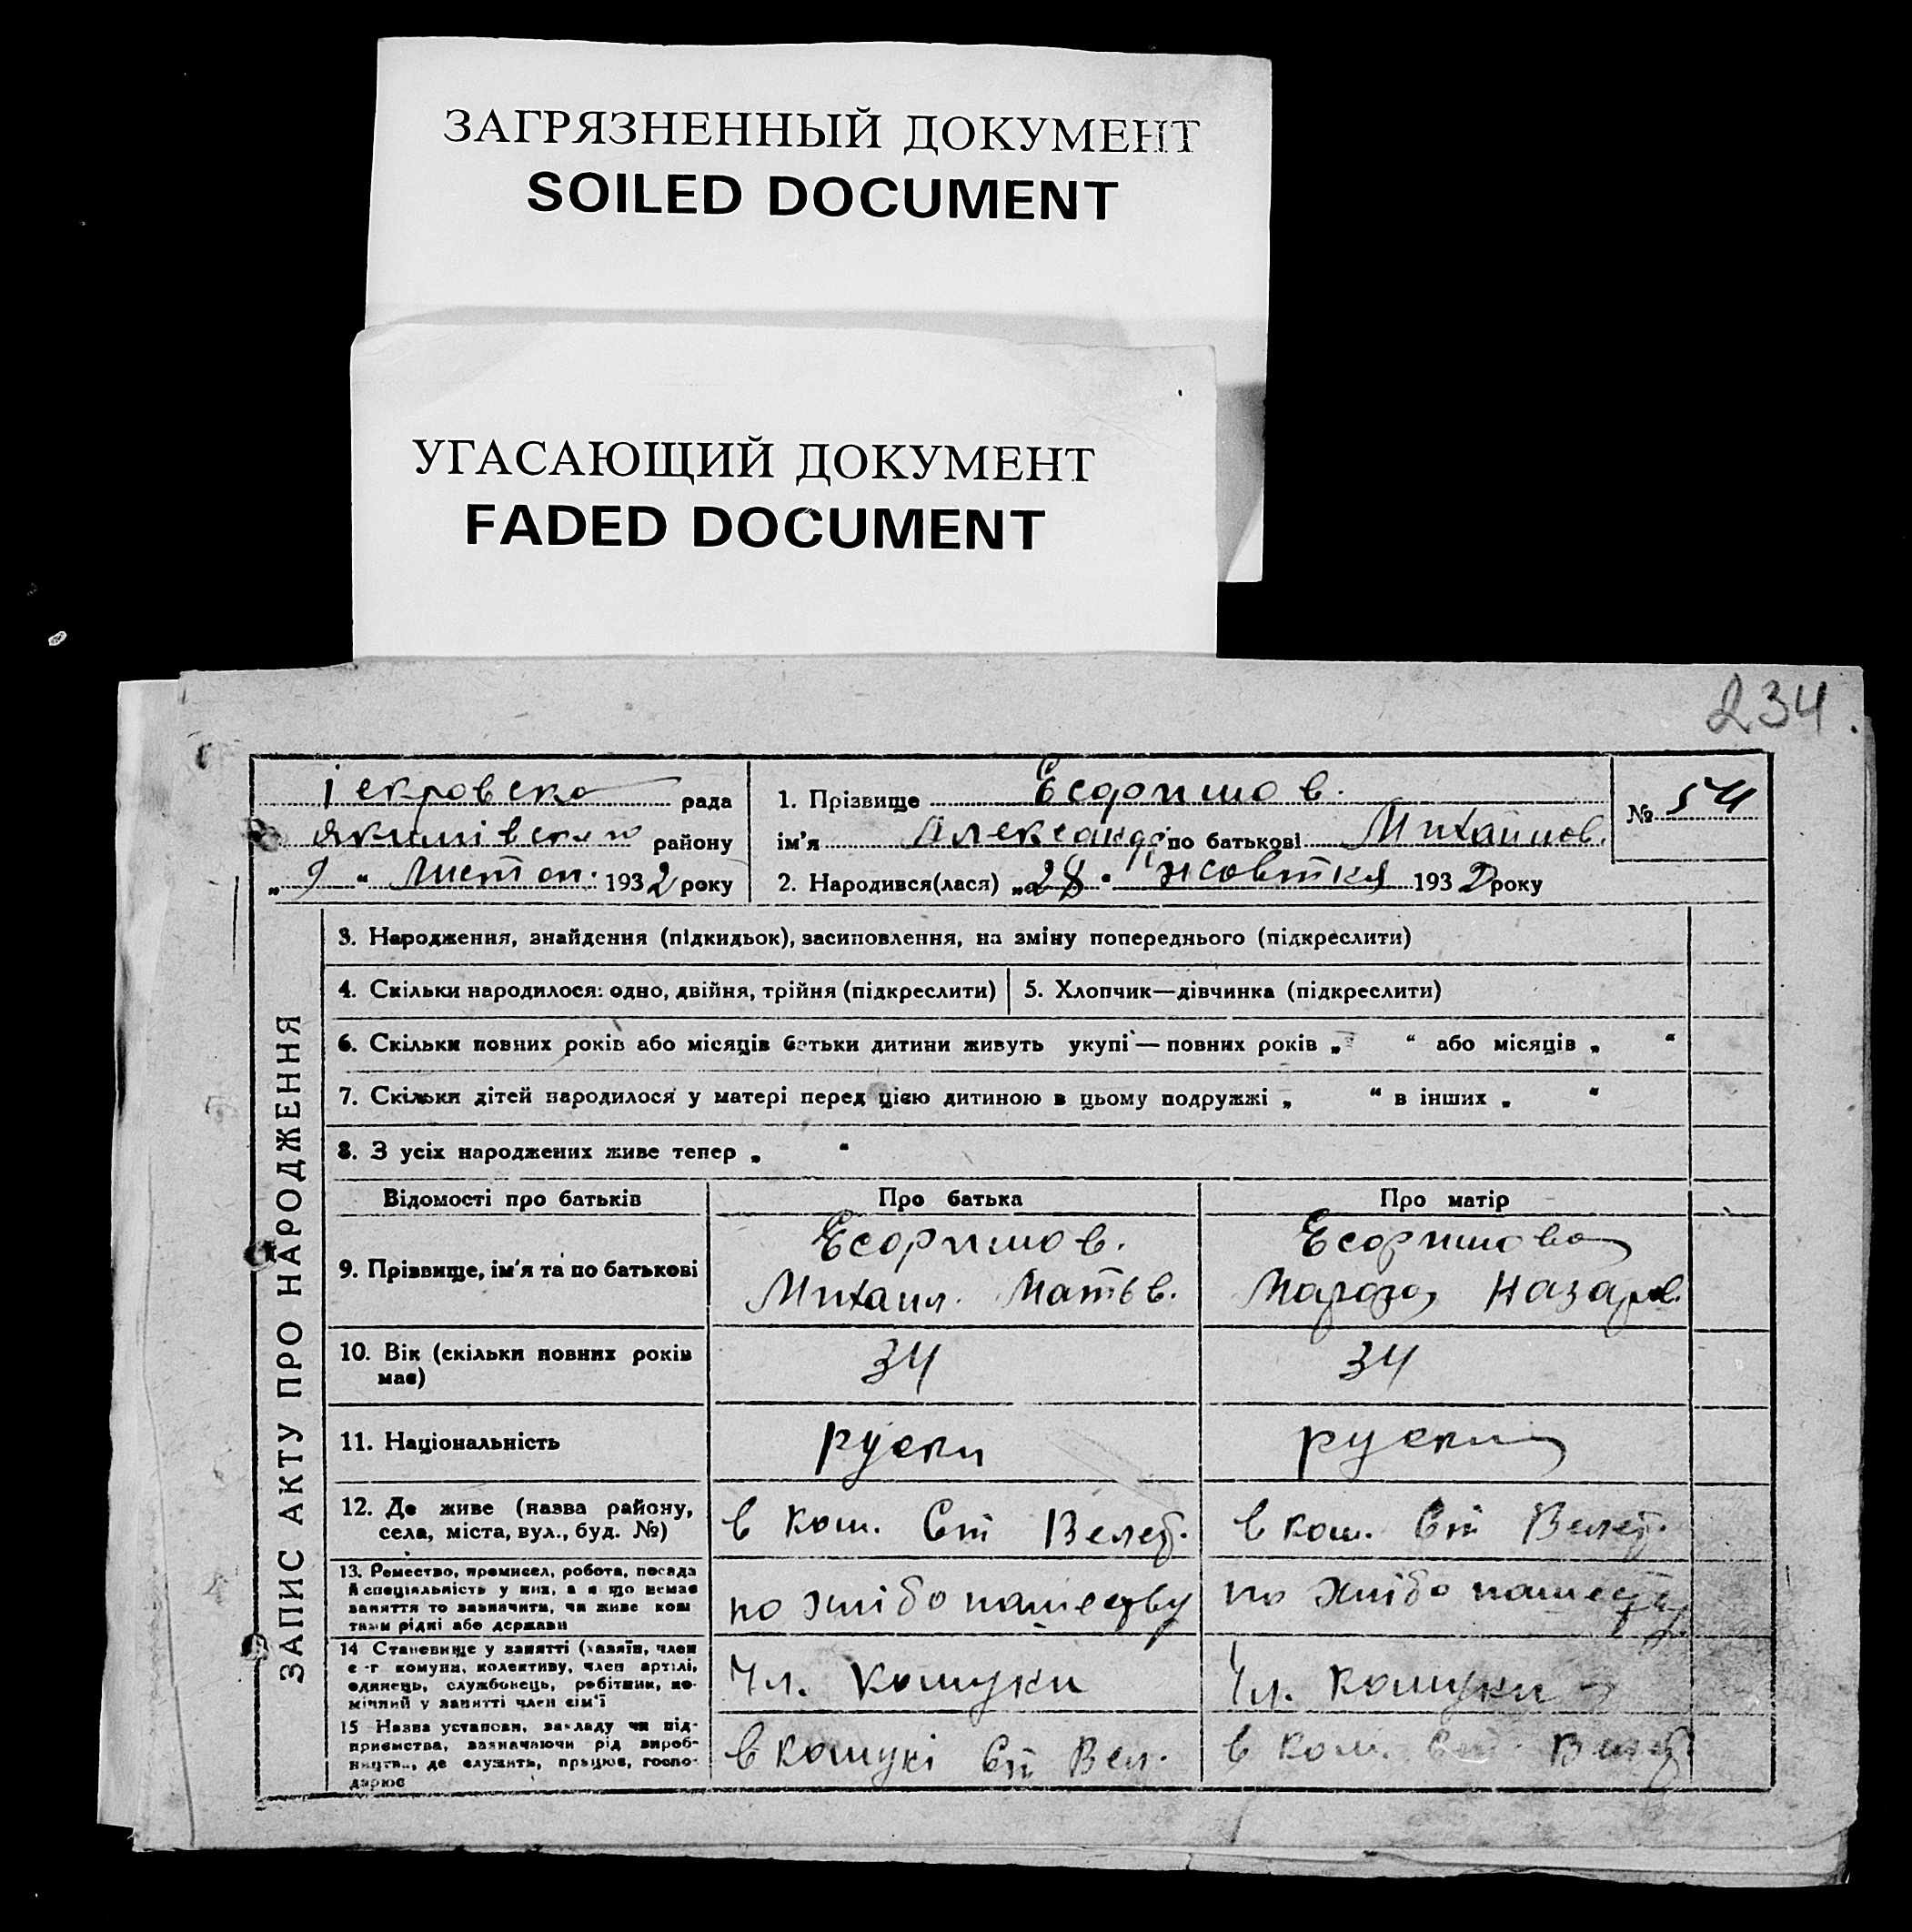 ЗАГРЯЗНЕННЫЙ ДОКУМЕНТ
SOILED DOCUMENT
УГАСАЮЩИЙ ДОКУМЕНТ
FADED DOCUMENT
234
рада
району
„ 9 “ Листоп. 1932 року
1. Прізвище
ім'я Александр по батькові Михайлов.
2. Народився(лася) „28“ жовтня 1932 року
№ 54
ЗАПИС АКТУ ПРО НАРОДЖЕННЯ
3. Народження, знайдення (підкидьок), засиновлення, на зміну попереднього (підкреслити)
4. Скільки народилося: одно, двійня, трійня (підкреслити)
5. Хлопчик—дівчинка (підкреслити)
6. Скільки повних років або місяців батьки дитини живуть укупі — повних років „ “ або місяців „ “
7. Скільки дітей народилося у матері перед цією дитиною в цьому подружжі „ “ в інших „ “
8. З усіх народжених живе тепер „ “
Відомості про батьків
Про батька
Про матір
9. Прізвище, ім'я та по батькові
Михаил. Матьв.
Назаров.
10. Вік (скільки повних років
має)
34
34
11. Національність
руски
руски
12. Де живе (назва району,
села, міста, вул., буд. №)
в ком. Ст Велет.
в ком. Ст Велет.
13. Ремество, промисел, робота, посада
й спеціяльність у них, а я що немає
заняття то зазначити, чи живе кош
тами рідні або держави
по хлібопашеству
по хлібопашеству
14 Становище у занятті (хазяїн, член
с.-г комуни, колективу, член артілі,
одинець, службовець, робітник, по-
мічний у занятті член сім'ї
Чл. комуни
Чл. комуни
15 Назва установи, закладу чи під-
приємства, зазначаючи рід вироб-
ництва, де служить, працює, госпо-
дарює
в комуні Ст Вел.
в ком. Ст. Велет.